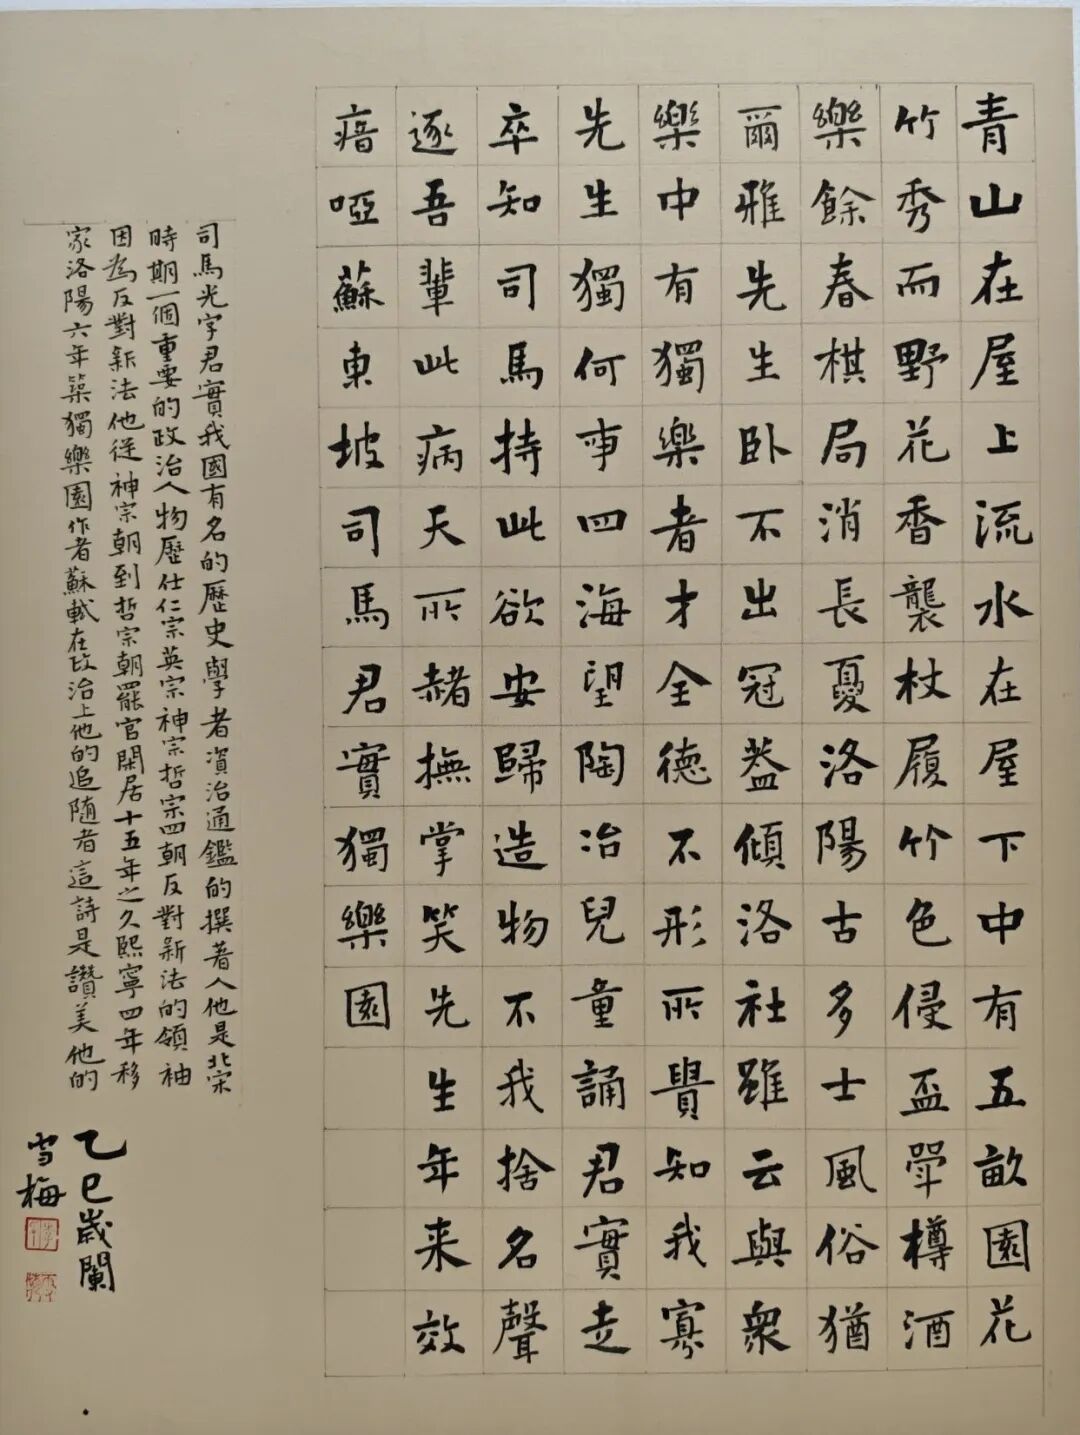 青山在屋上流水在屋下中有五畝園花
竹秀而野花香襲杖履竹色侵盃斝樽酒
樂餘春棋局消長夏洛陽古多士風俗猶
爾雅先生卧不出冠蓋傾洛社雖云與衆
樂中有獨樂者才全德不形所貴知我寡
先生獨何事四海望陶冶兒童誦君實走
卒知司馬持此欲安歸造物不我捨名聲
逐吾輩此病天所赭撫掌笑先生年来效
瘖啞蘇東坡司馬君實獨樂園
司馬光字君實我國有名的歷史學者資治通鑑的撰著人他是北宋
時期一個重要的政治人物歷仕仁宗英宗神宗哲宗四朝反對新法的領袖
因為反對新法他從神宗朝到哲宗朝罷官閑居十五年之久熙寧四年移
家洛陽六年築獨樂園作者蘇軾在政治上他的追隨者這詩是讚美他的
乙巳歲闌
雪梅